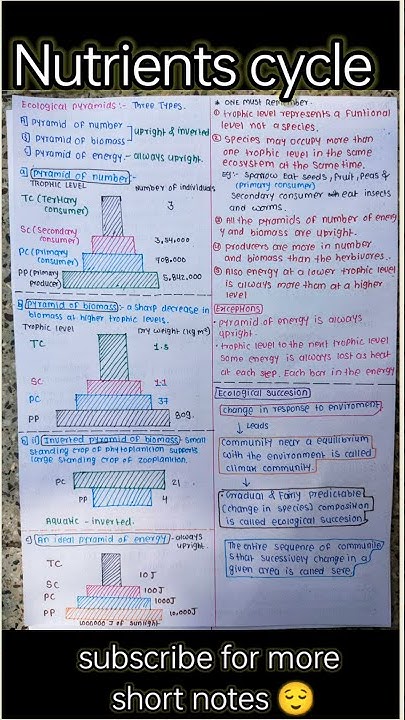 Nutrients cycle
Ecological pyramids :- Three Types.
A) pyramid of number
B) pyramid of biomass
upright & inverted
C) pyramid of energy - always upright.
a) pyramid of number :-
TROPHIC LEVEL
Number of individuals
TC (Tertiary consumer)
3
SC (Secondary consumer)
3,54,000
PC (primary consumer)
708,000
PP (primary producer)
5,842,000
b) pyramid of biomass :- a sharp decrease in
biomass at higher trophic levels.
Trophic level
Dry weight (kg m²)
TC
1.5
SC
1.1
PC
37
PP
809.
b) ii) Inverted pyramid of biomass - small
standing crop of phytoplankton supports
large standing crop of zooplankton.
PC
21
PP
4
Aquatic - inverted.
c) An ideal pyramid of energy - always
upright.
TC
10 J
SC
100 J
PC
1000 J
PP
10,000 J
1000,000 J of sunlight
* ONE MUST Remember.
① trophic level represents a funtional
level not a species.
② species may occupy more than
one trophic level in the same
ecosystem at the same time.
Eg:- Sparrow eat seeds, fruit, peas &
(primary consumer)
secondary consumer eat insects
and worms.
③ All the pyramids of number of energ
y and biomass are upright.
④ producers are more in number
and biomass than the herbivores.
⑤ Also energy at a lower trophic level
is always more than at a higher
level
Exceptions
• pyramid of energy is always
upright.
• trophic level to the next trophic level
some energy is always lost as heat
at each step. Each bar in the energy
Ecological succesion
change in response to enviroment
↓ Leads
community near a equilibrium
with the environment is called
climax community.
↓
• Gradual & Fairly predictable
(change in species) composition
is called ecological succesion.
The entire sequence of communitie
s that sucessively change in a
given area is called sere.
subscribe for more
short notes 😌